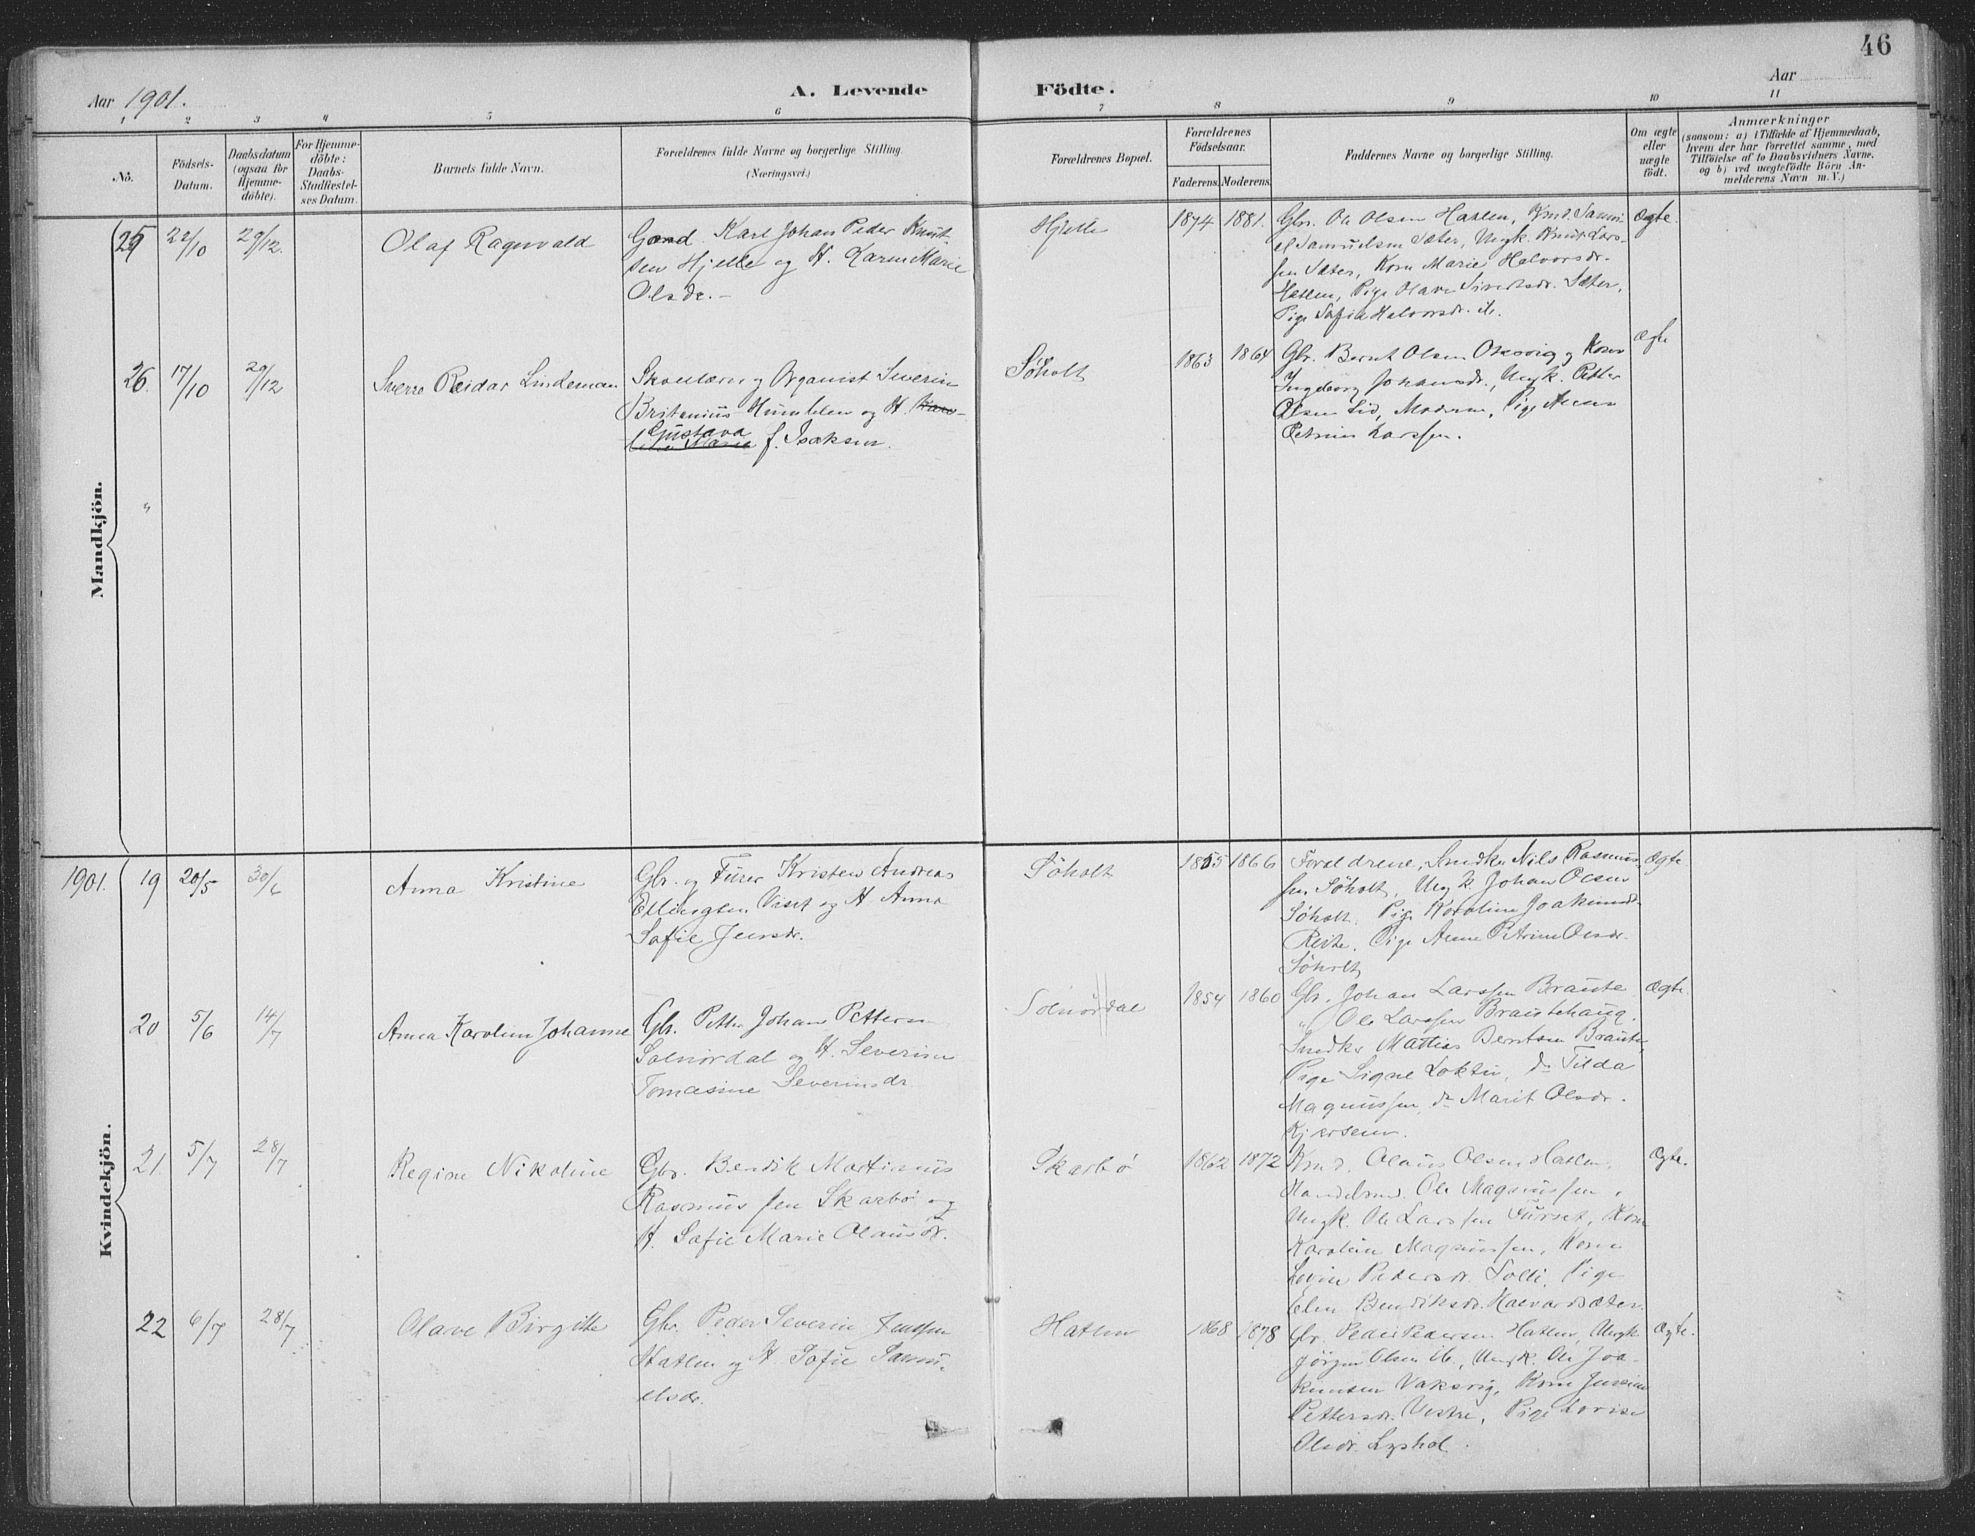 46
Aar 1901.
A. Levende Fødte.
Aar
1 2 3 4 5 6 7 8 9 10 11
No.
Fødsels-
Datum.
Daabsdatum
(ogsaa for
Hjemme-
døbte).
For Hjemme-
døbte:
Daabs-
Stadfæstel-
ses Datum.
Barnets fulde Navn.
Forældrenes fulde Navne og borgerlige Stilling.
(Næringsvei.)
Forældrenes Bopæl.
Forældrenes
Fødselsaar.
Faderens. Moderens.
Faddernes Navne og borgerlige Stilling.
Om ægte
eller
uægte
født.
Anmærkninger
(saasom: a) i Tilfælde af Hjemmedaab,
hvem der har forrettet samme, med
Tilføielse af to Daabsvidners Navne.
og b) ved uægtefødte Børn An-
melderens Navn m. V.)
Mandkjøn.
25 22/10 29/12. Olaf Ragnvald
Gaard. Karl Johan Peder Knut-
sen Hjelle og H. Karen Marie
Olsdr. -
Hjelle 1874 1881.
Gbr. Ole Olsen Hatlen, Kmd. Samu-
el Samuelsen Sæter, Ungk. Knut Lars-
sen Sæter, Kone Marie Halvorsdr.
Hatlen, Pige Olave Sivertsdr. Sæter,
Pige Sofia Halvorsdr. ib.
Ægte
26. 17/10 29/12 Sverre Reidar Lindeman
Skolelærer og Organist Severin
Britanius Humblen og H.
Gustava
Marie f. Isaksen.
Søholt 1863 1864
Gbr. Bernt Olsen og Kone
Ingeborg Johansdr., Ungk. Petter
Olsen Lid, Moderen, Pige Anna
Petrine Larssen.
Ægte
"
Kvindekjøn.
1901. 19 20/5 30/6 Anna Kristine
Gbr. og Furer Kristen Andreas
Ellingsen Viset og H. Anna
Sofie Jensdr.
Søholt 1855 1866
Forældrene, Snedker Nils Rasmus-
sen Søholt, Ungk. Johan Olsen
Søholt. Pige Karoline Joakimsdr.
Reite. Pige Anne Petrine Olsdr.
Søholt
Ægte
20 5/6 14/7 Anna Karoline Johanne
Gbr. Petter Johan Pettersen
Solnørdal og H. Severine
Tomasine Severinsdr.
Solnørdal 1854 1860
Gbr. Johan Larssen Braute
" Ole Larssen Brautehaug.
Snedker Mattias Berntsen Braute,
Pige Signe Lokten, do Tilda
Magnussen, do Marit Olsdr.
Ægte.
21. 5/7 28/7 Regine Nikoline
Gbr. Bendik Martinus
Rasmussen Skarbø og
H. Sofie Marie Olausdr.
Skarbø 1862 1872
Kmd. Olaus Olsen Hatlen,
Handelsmd. Ole Magnussen,
Ungk. Ole Larssen Furset, Kone
Karoline Magnussen, Kone
Lovise Pedersdr. Solli, Pige
Elen Bendiksdr. Halvardsæter.
Ægte.
22 6/7 28/7 Olave Birgitte
Gbr. Peder Severin Jenssen
Hatlen og H. Sofie Samu-
elsdr.
Hatlen 1868 1878
Gbr. Peder Pedersen Hatlen, Ungk.
Jørgen Olsen ib., Ungk. Ole Joa-
kimsen Vaksvig, Kone
Pettersdr. Vestre, Pige Lovise
Olsdr. Lyshol.
Ægte.